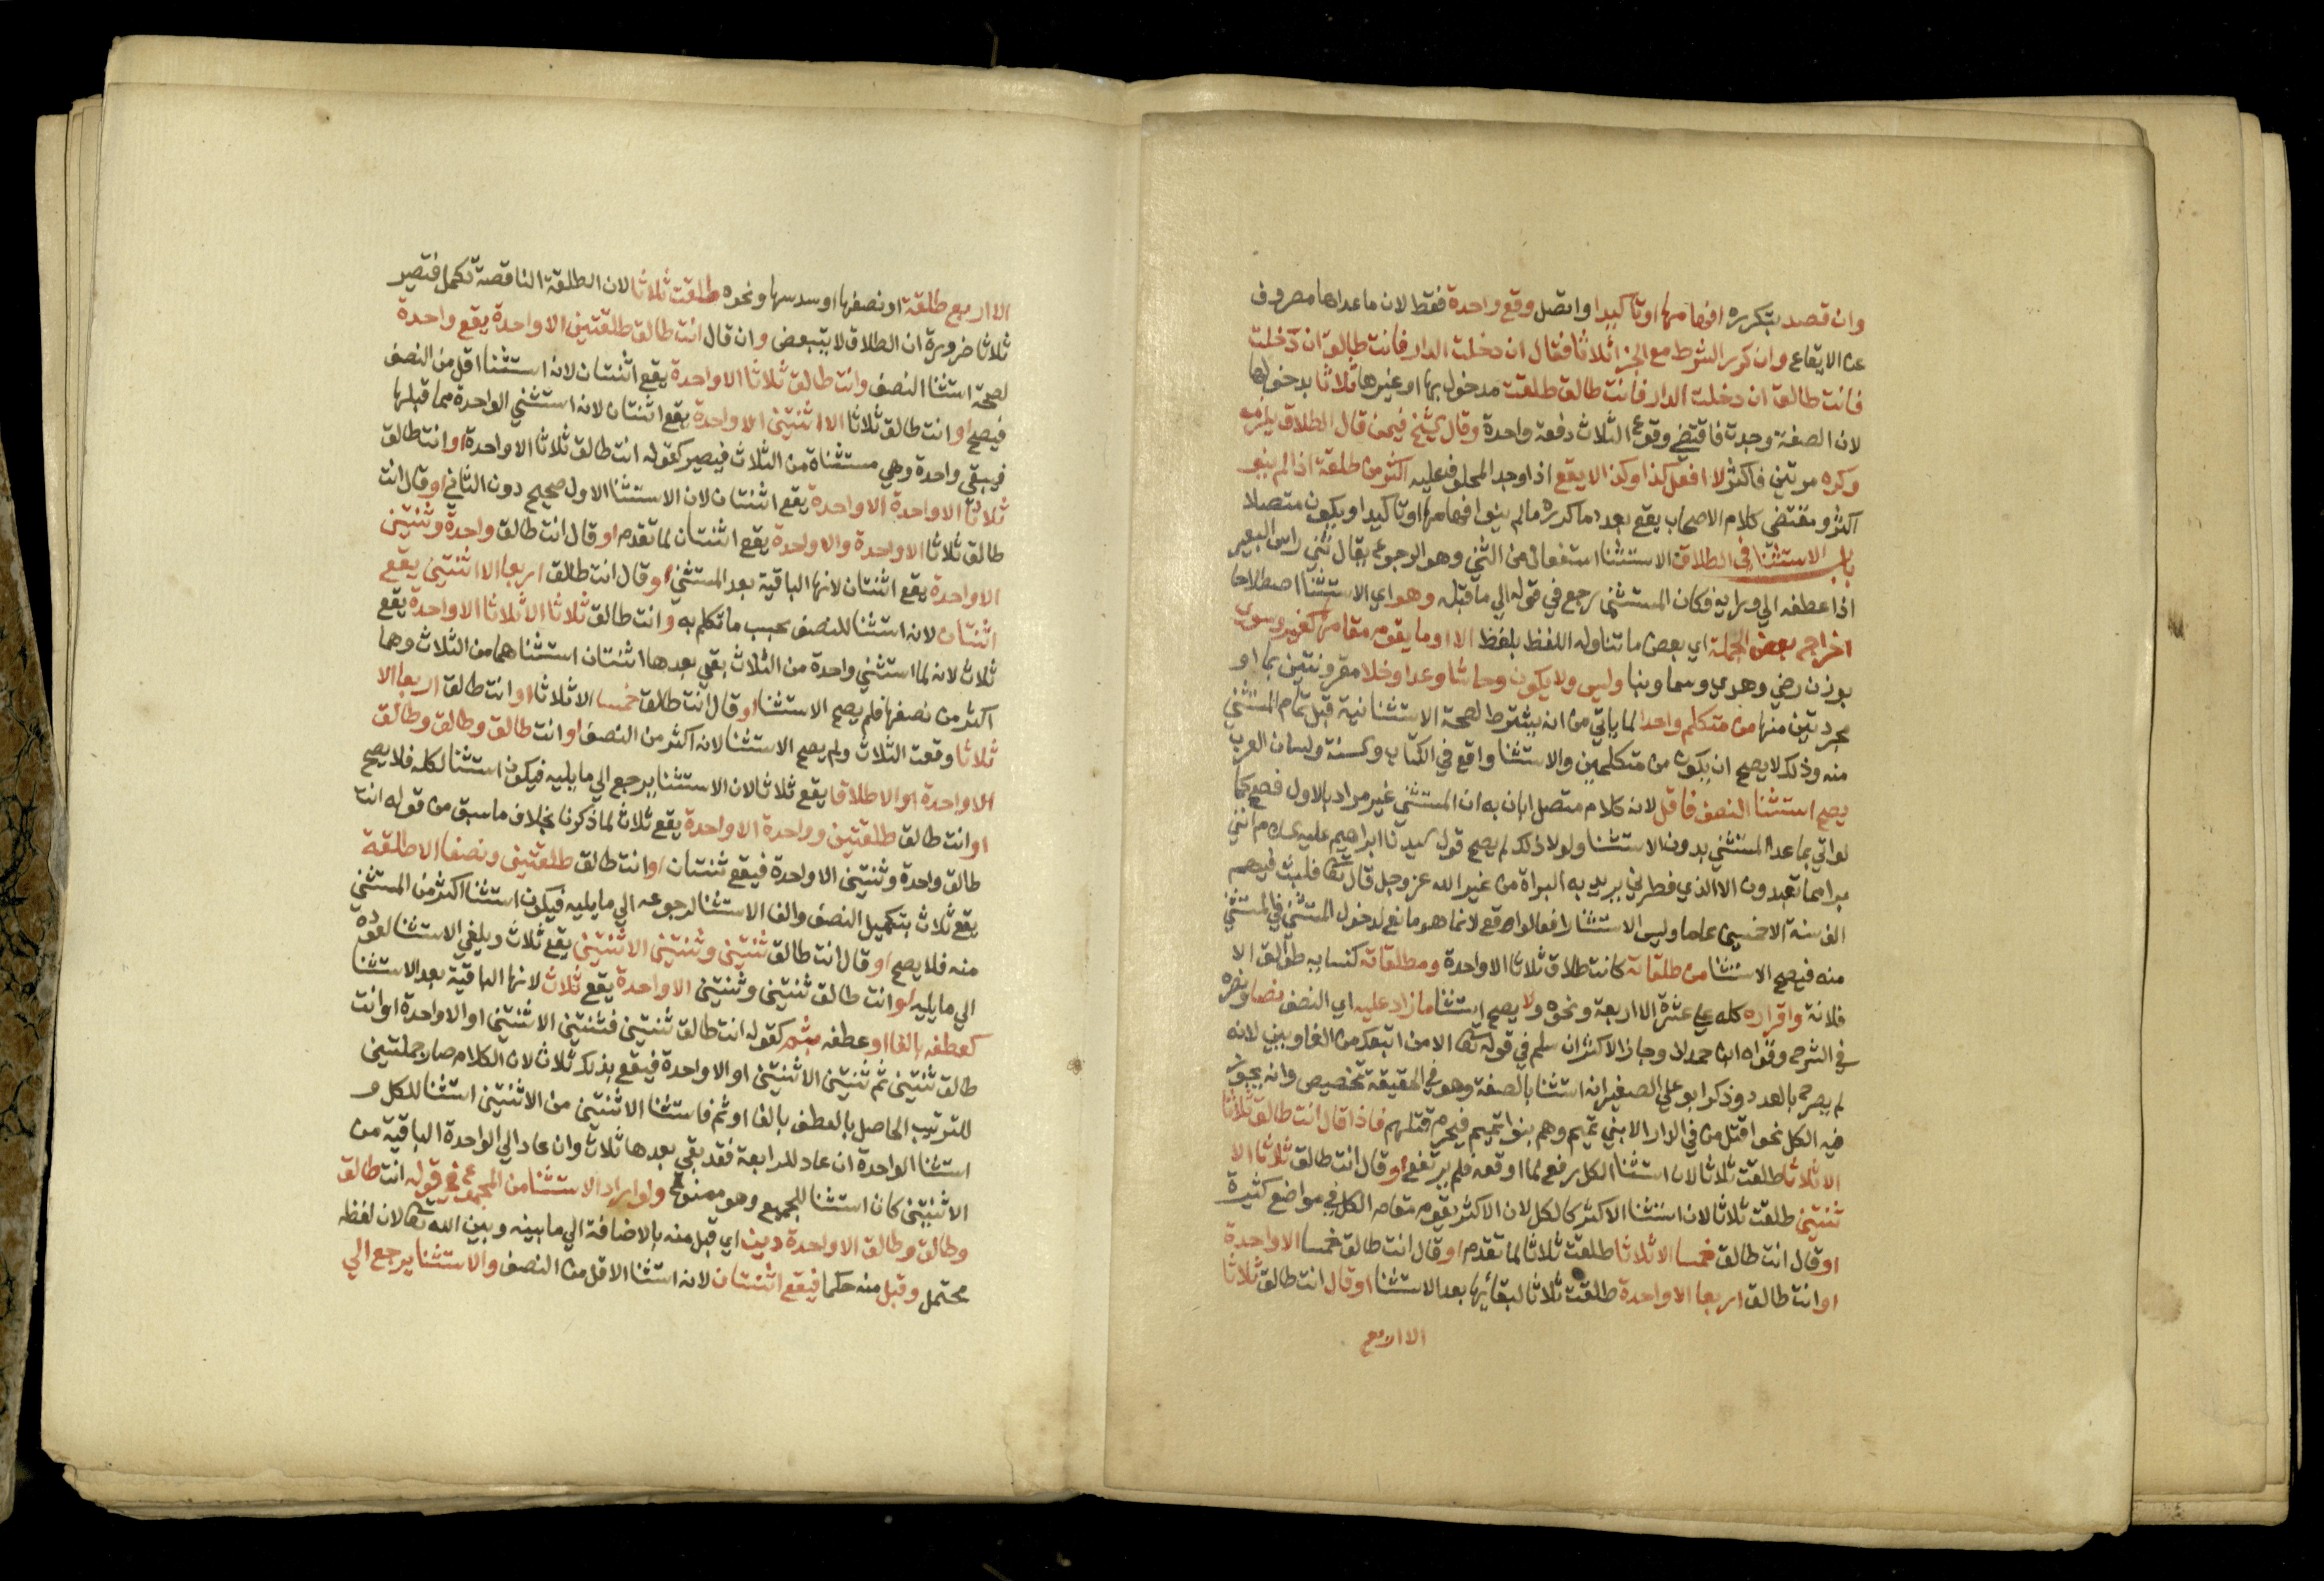 وان قصد بتكريره افهامها او تاكيدا واتصل وقع واحدة فقط لان ماعداها مصروف
عن الايقاع وان كرر الشرط مع الجزا ثلاثا فقال ان دخلت الدار فانت طالق ان دخلت
فانت طالق ان دخلت الدار فانت طالق طلقت مدخول بها او غيرها ثلاثا بدخولها
لان الصفة وجدت فاقتضي وقوع الثلاث دفعة واحدة وقال الشيخ فيمن قال الطلاق يلزمه
وكرره مرتين فاكثر لا افعل كذا وكذا لا يقع اذا وجد المحلوف عليه اكثر من طلقة اذا لم ينو
اكثر ومقتضي كلام الاصحاب يقع بعدد ما كرره مالم ينو افهامها او تاكيدا ويكون متصلا
باب الاستثنا في الطلاق الاستثنا استفعال من الثني وهو الرجوع يقال ثني راس البعير
اذا عطفه الي ورايه فكان المستثني رجع في قوله الي ما قبله وهو اي الاستثنا اصطلاحا
اخراج بعض الجملة اي بعض ما تناوله اللفظ بلفظ الا او ما يقوم مقامها كغير وسوي
بوزن رضي وهدي وسما وبنا وليس ولا يكون وحاشا وعدا وخلا مقرونتين بما او
مجردتين منها من متكلم واحد لما ياتي من انه يشترط لصحة الاستثنا نية قبل تمام المستثني
منه وذلك لا يصح ان يكون من متكلمين والاستثنا واقع في الكتاب والسنة ولسان العرب
يصح استثنا النصف فاقل لانه كلام متصل ابان به ان المستثني غير مراد بالاول فصح كما
لو اتي بما عدا المستثني بدون الاستثنا ولولا ذلك لم يصح قول سيدنا ابراهيم عليه السلام انني
برا مما تعبدون الا الذي فطرني يريد به البراة من غير الله عز وجل قال تعا فلبث فيهم
الف سنة الا خمسين عاما وليس الاستثنا رافعا لواقع لانما هو مانع لدخول المستثني في المستثني
منه فيصح الاستثنا من طلقاته كانت طلاق ثلاثا الا واحدة ومطلقاته كنسايه طوالق الا
فلانة واقراره كله علي عشرة الا اربعة ونحوه ولا يصح استثنا ما زاد عليه اي النصف نصا ونصره
في الشرح وقواه ابن حمدان وجاز الاكثر ان سلم في قوله تعا الا من اتبعك من الغاوين لانه
لم يصرح بالعدد وذكر ابو علي الصغير انه استثنا بالصفة وهو في الحقيقة تخصيص وانه يجوز
فيه الكل نحو اقتل من في الدار الا بني تميم وهم بنو تميم فيحرم قتلهم فاذا قال انت طالق ثلاثا
الا ثلاثا طلقت ثلاثا لان استثنا الكل رفع لما اوقعه فلم يرتفع او قال انت طالق ثلاثا الا
ثنتين طلقت ثلاثا لان استثنا الاكثر كالكل لان الاكثر يقوم مقام الكل في مواضع كثيرة
او قال انت طالق خمسا الا ثلاثا طلقت ثلاثا لما تقدم او قال انت طالق خمسا الا واحدة
او انت طالق اربعا الا واحدة طلقت ثلاثا لبقائها بعد الاستثنا او قال انت طالق ثلاثا
الا اربع
الا اربع طلقة او نصفها او سدسها ونحوه طلقت ثلاثا لان الطلقة الناقصة تكمل فتصير
ثلاثا ضرورة ان الطلاق لا يتبعض وان قال انت طالق طلقتين الا واحدة يقع واحدة
لصحة استثنا النصف وانت طالق ثلاثا الا واحدة يقع اثنتان لانه استثنا اقل من النصف
فيصح او انت طالق ثلاثا الا اثنتين الا واحدة يقع اثنتان لانه استثني الواحدة مما قبلها
فيبقي واحدة وهي مستثناة من الثلاث فيصير كقوله انت طالق ثلاثا الا واحدة او انت طالق
ثلاثا الا واحدة الا واحدة يقع اثنتان لان الاستثنا الاول صحيح دون الثاني او قال انت
طالق ثلاثا الا واحدة والا واحدة يقع اثنتان لما تقدم او قال انت طالق واحدة وثنتين
الا واحدة يقع اثنتان لانها الباقية بعد المستثني او قال انت طالق اربعا الا اثنتين يقع
اثنتان لانه استثنا للنصف بحسب ما تكلم به وانت طالق ثلاثا الا ثلاثا الا واحدة يقع
ثلاث لانه لما استثني واحدة من الثلاث بقي بعدها اثنتان استثناهما من الثلاث وهما
اكثر من نصفها فلم يصح الاستثنا او قال انت طالق خمسا الا ثلاثا او انت طالق اربعا الا
ثلاثا وقعت الثلاث ولم يصح الاستثنا لانه اكثر من النصف او انت طالق وطالق وطالق
الا واحدة او الا طلاقا يقع ثلاثا لان الاستثنا يرجع الي ما يليه فيكون استثنا لكله فلا يصح
او انت طالق طلقتين وواحدة الا واحدة يقع ثلاث لما ذكرنا بخلاف ما سبق من قوله انت
طالق واحدة وثنتين الا واحدة فيقع ثنتان او انت طالق طلقتين ونصفا الا طلقة
يقع ثلاث بتكميل النصف والغا الاستثنا لرجوعه الي ما يليه فيكون استثنا اكثر من المستثني
منه فلا يصح او قال انت طالق ثنتين وثنتين الا ثنتين يقع ثلاث ويلغي الاستثنا لعوده
الي ما يليه او انت طالق ثنتين وثنتين الا واحدة يقع ثلاث لانها الباقية بعد الاستثنا
كعطفه بالفا او عطفه بثم كقوله انت طالق ثنتين فثنتين الا ثنتين او الا واحدة او انت
طالق ثنتين ثم ثنتين الا ثنتين او الا واحدة فيقع بذلك ثلاث لان الكلام صار جملتين
للترتيب الحاصل بالعطف بالفا او ثم فاستثنا الاثنتين من الاثنتين استثنا للكل و
استثنا الواحدة ان عاد للرابعة فقد بقي بعدها ثلاث وان عاد الي الواحدة الباقية من
الاثنتين كان استثنا للجميع وهو ممنوع ولو اراد الاستثنا من المجموع في قوله انت طالق
وطالق وطالق الا واحدة دين اي قبل منه بالاضافة الي ما بينه وبين الله تعا لان لفظه
محتمل وقبل منه حكما فيقع اثنتان لانه استثنا الاقل من النصف والاستثنا يرجع الي